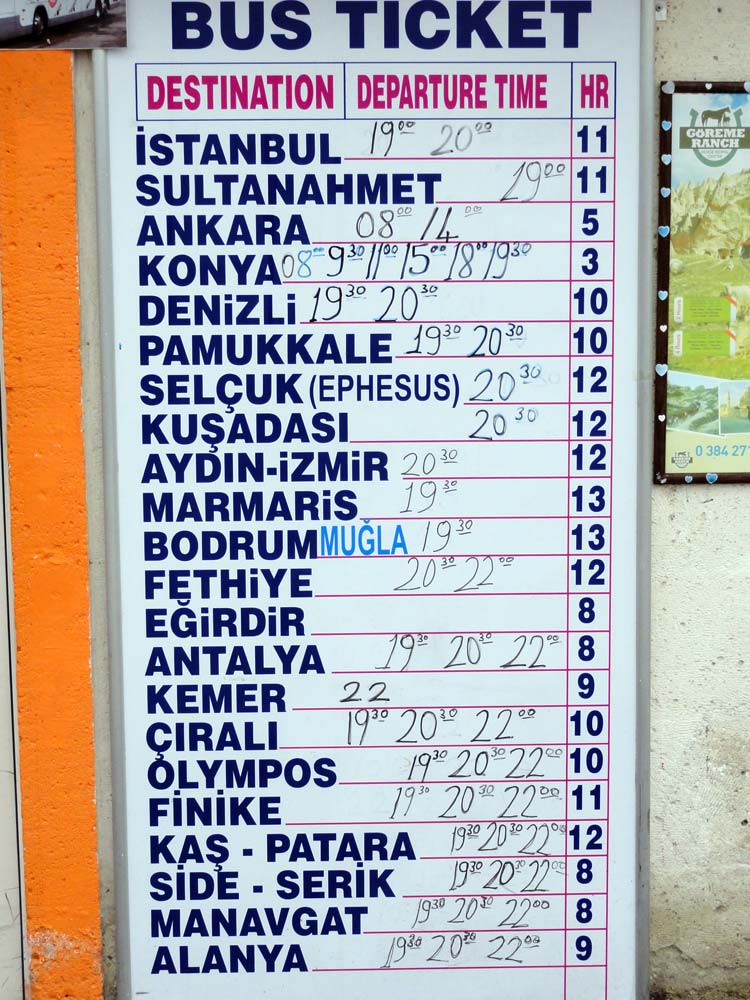 BUS TICKET
DESTINATION DEPARTURE TIME HR
İSTANBUL 19⁰⁰ 20⁰⁰ 11
SULTANAHMET 19⁰⁰ 11
ANKARA 08⁰⁰ 14⁰⁰ 5
KONYA 08⁰⁰ 9³⁰ 11⁰⁰ 15⁰⁰ 18⁰⁰ 19³⁰ 3
DENiZLi 19³⁰ 20³⁰ 10
PAMUKKALE 19³⁰ 20³⁰ 10
SELÇUK (EPHESUS) 20³⁰ 12
KUŞADASI 20³⁰ 12
AYDIN-iZMiR 20³⁰ 12
MARMARiS 19³⁰ 13
BODRUM MUĞLA 19³⁰ 13
FETHiYE 20³⁰ 22⁰⁰ 12
EĞiRDiR 8
ANTALYA 19³⁰ 20³⁰ 22⁰⁰ 8
KEMER 22 9
ÇIRALI 19³⁰ 20³⁰ 22⁰⁰ 10
OLYMPOS 19³⁰ 20³⁰ 22⁰⁰ 10
FİNİKE 19³⁰ 20³⁰ 22⁰⁰ 11
KAŞ - PATARA 19³⁰ 20³⁰ 22⁰⁰ 12
SİDE - SERİK 19³⁰ 20³⁰ 22⁰⁰ 8
MANAVGAT 19³⁰ 20³⁰ 22⁰⁰ 8
ALANYA 19³⁰ 20³⁰ 22⁰⁰ 9
GÖREME
RANCH
0 384 271